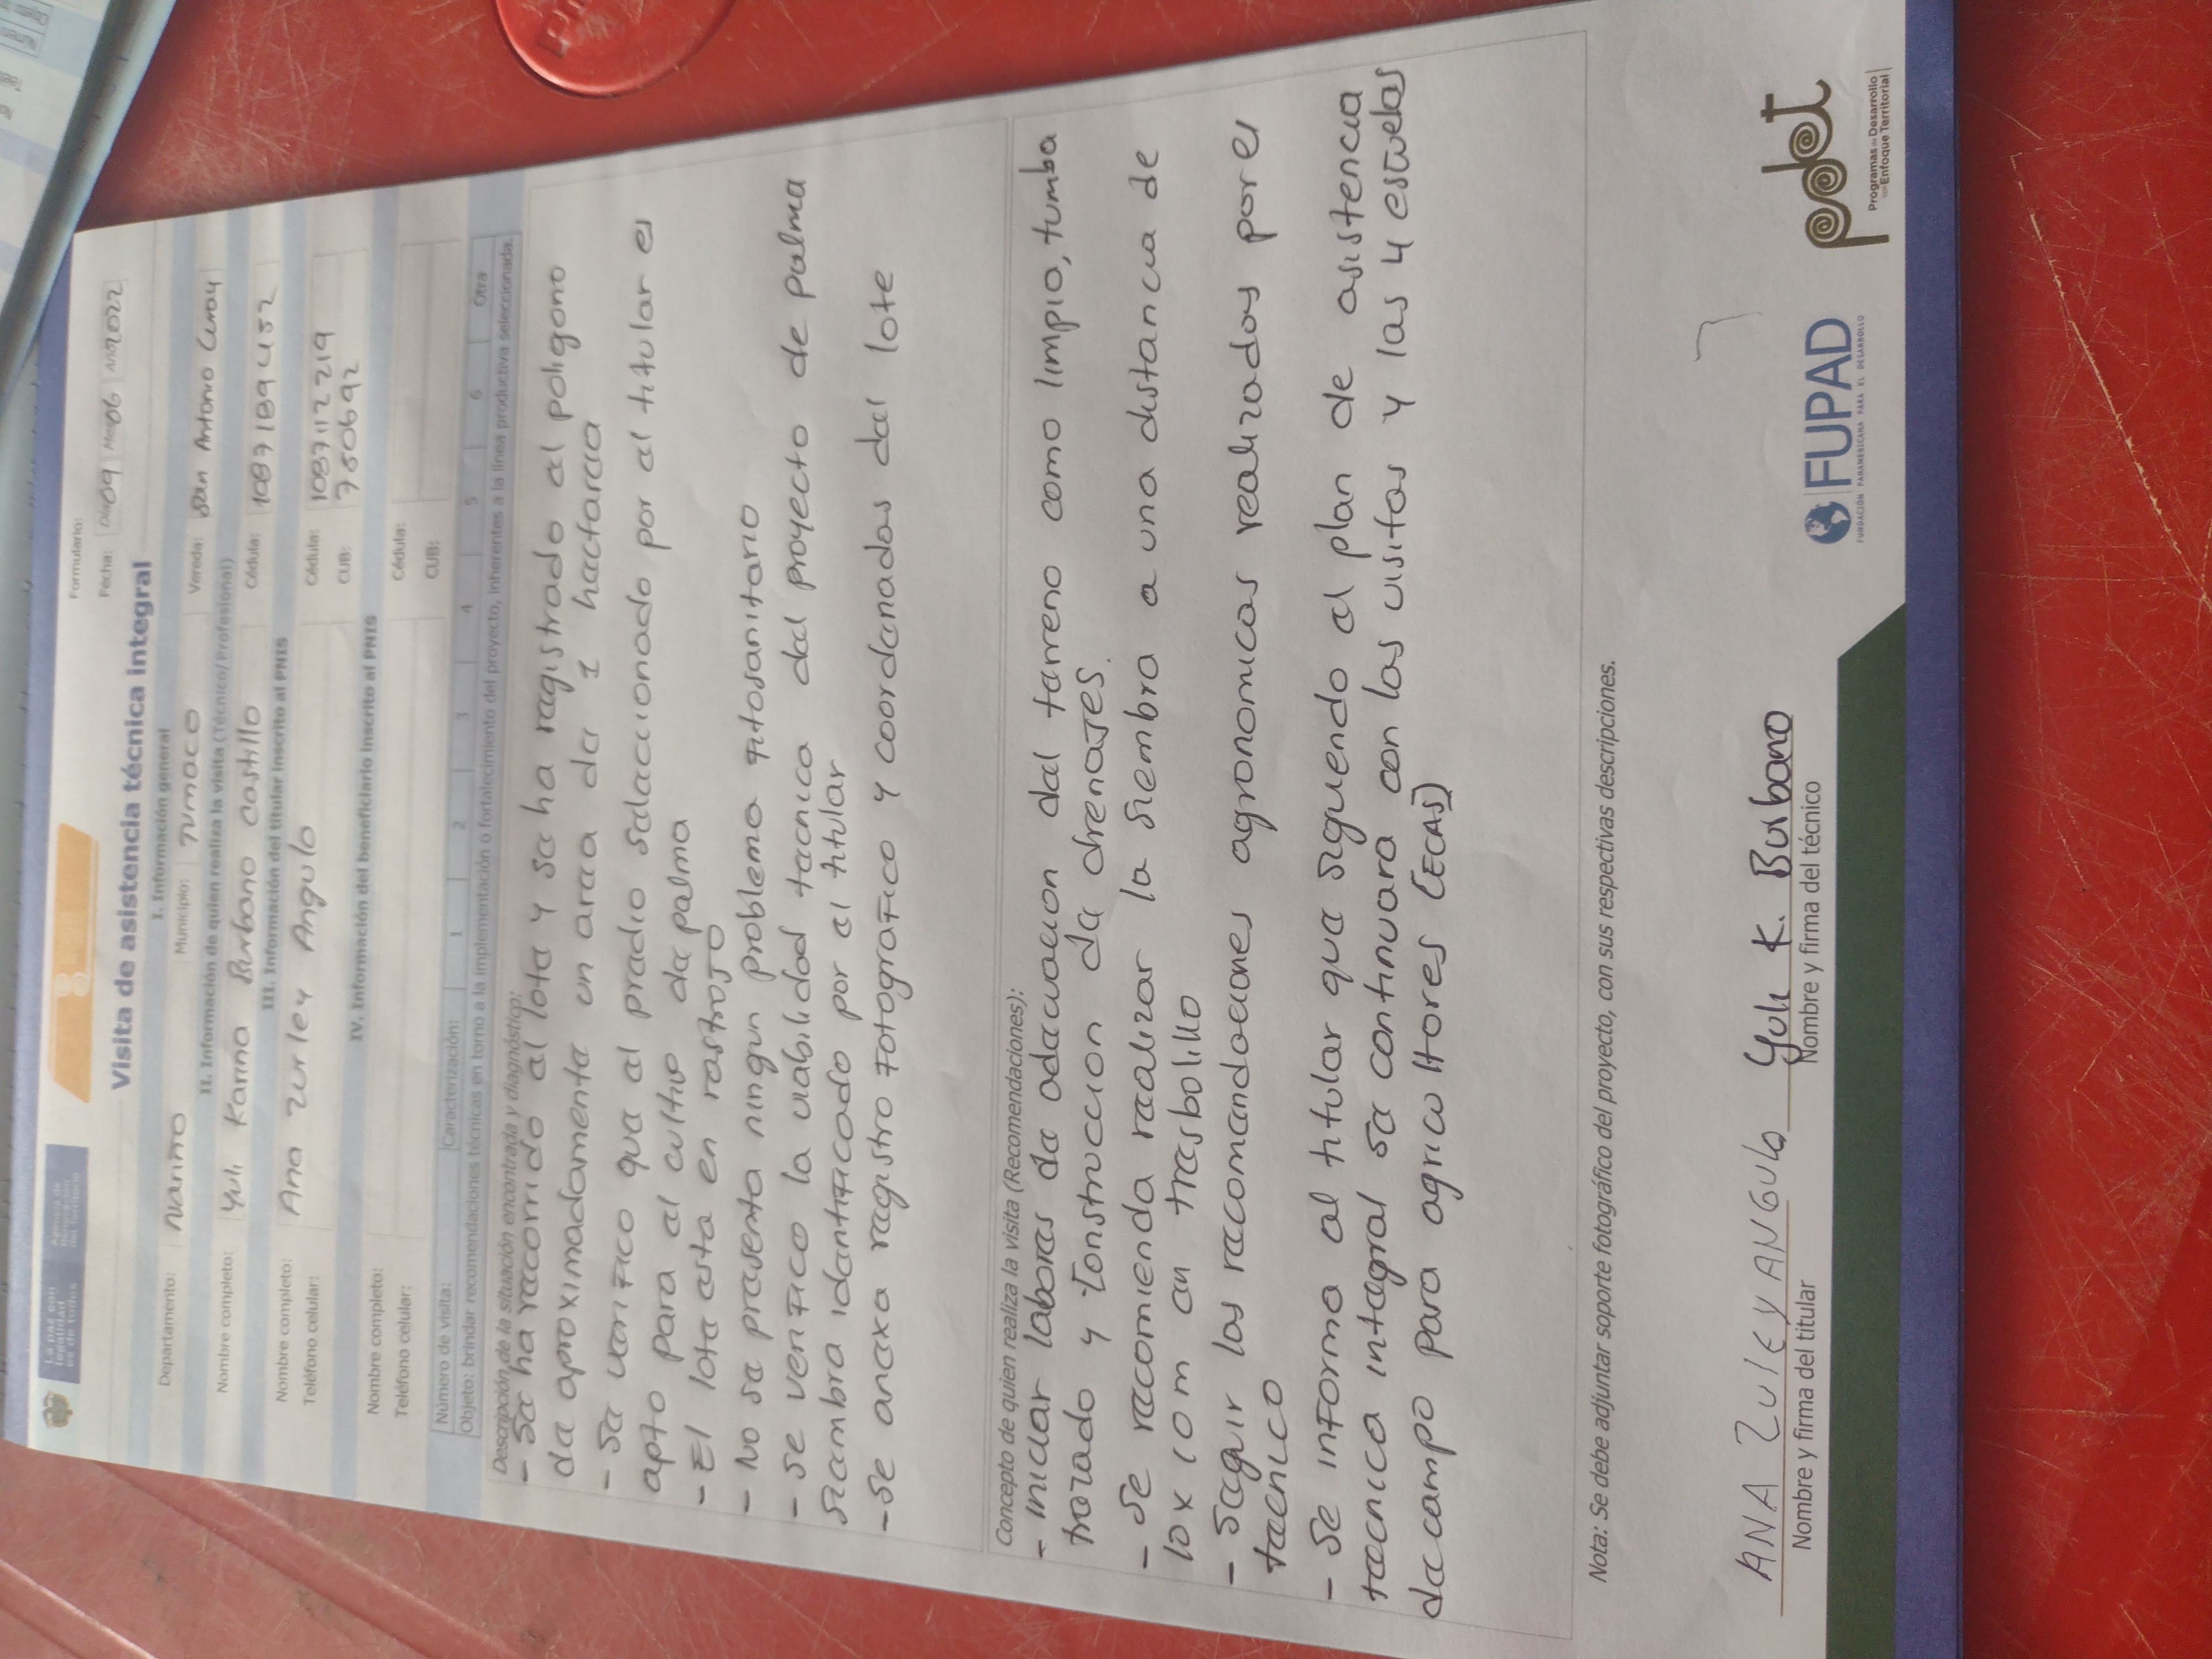 La paz con legalidad es de todos
Formulario:
Fecha: Día 09 Mes 06 Año 2022
Visita de asistencia técnica integral
I. Información general
Departamento: Nariño Municipio: Tumaco Vereda: San Antonio Curay
II. Información de quien realiza la visita (Técnico/Profesional)
Nombre completo: Yuli Karina Burbano Castillo Cédula: 1087189452
III. Información del titular inscrito al PNIS
Nombre completo: Ana Zurley Angulo Cédula: 1087112219
Teléfono celular: CUB: 750692
IV. Información del beneficiario inscrito al PNIS
Nombre completo: Cédula:
Teléfono celular: CUB:
Número de visita: Caracterización: 1 2 3 4 5 6 Otra
Objeto: brindar recomendaciones técnicas en torno a la implementación o fortalecimiento del proyecto, inherentes a la línea productiva seleccionada.
Descripción de la situación encontrada y diagnóstico:
- Se ha recorrido el lote y se ha registrado el poligono
de aproximadamente un area de 1 hectarea
- Se verifico que el predio seleccionado por el titular es
apto para el cultivo de palma
- El lote esta en rastrojo
- No se presenta ningun problema fitosanitario
- Se verifico la viabilidad tecnica del proyecto de palma
siembra identificado por el titular
- Se anexa registro fotografico y coordenadas del lote
Concepto de quien realiza la visita (Recomendaciones):
- Iniciar labores de adecuacion del terreno como limpio, tumba
trazado y construccion de drenajes.
- Se recomienda realizar la siembra a una distancia de
10 x 10 m en tresbolillo
- Seguir las recomendaciones agronomicas realizados por el
tecnico
- Se informa al titular que siguendo el plan de asistencia
tecnica integral se continuara con las visitas y las 4 escuelas
de campo para agricultores (ECAS)
Nota: Se debe adjuntar soporte fotográfico del proyecto, con sus respectivas descripciones.
ANA ZULEY ANGULO Yuli K. Burbano
Nombre y firma del titular Nombre y firma del técnico
FUPAD
FUNDACIÓN PANAMERICANA PARA EL DESARROLLO
pdet
Programas de Desarrollo
con Enfoque Territorial